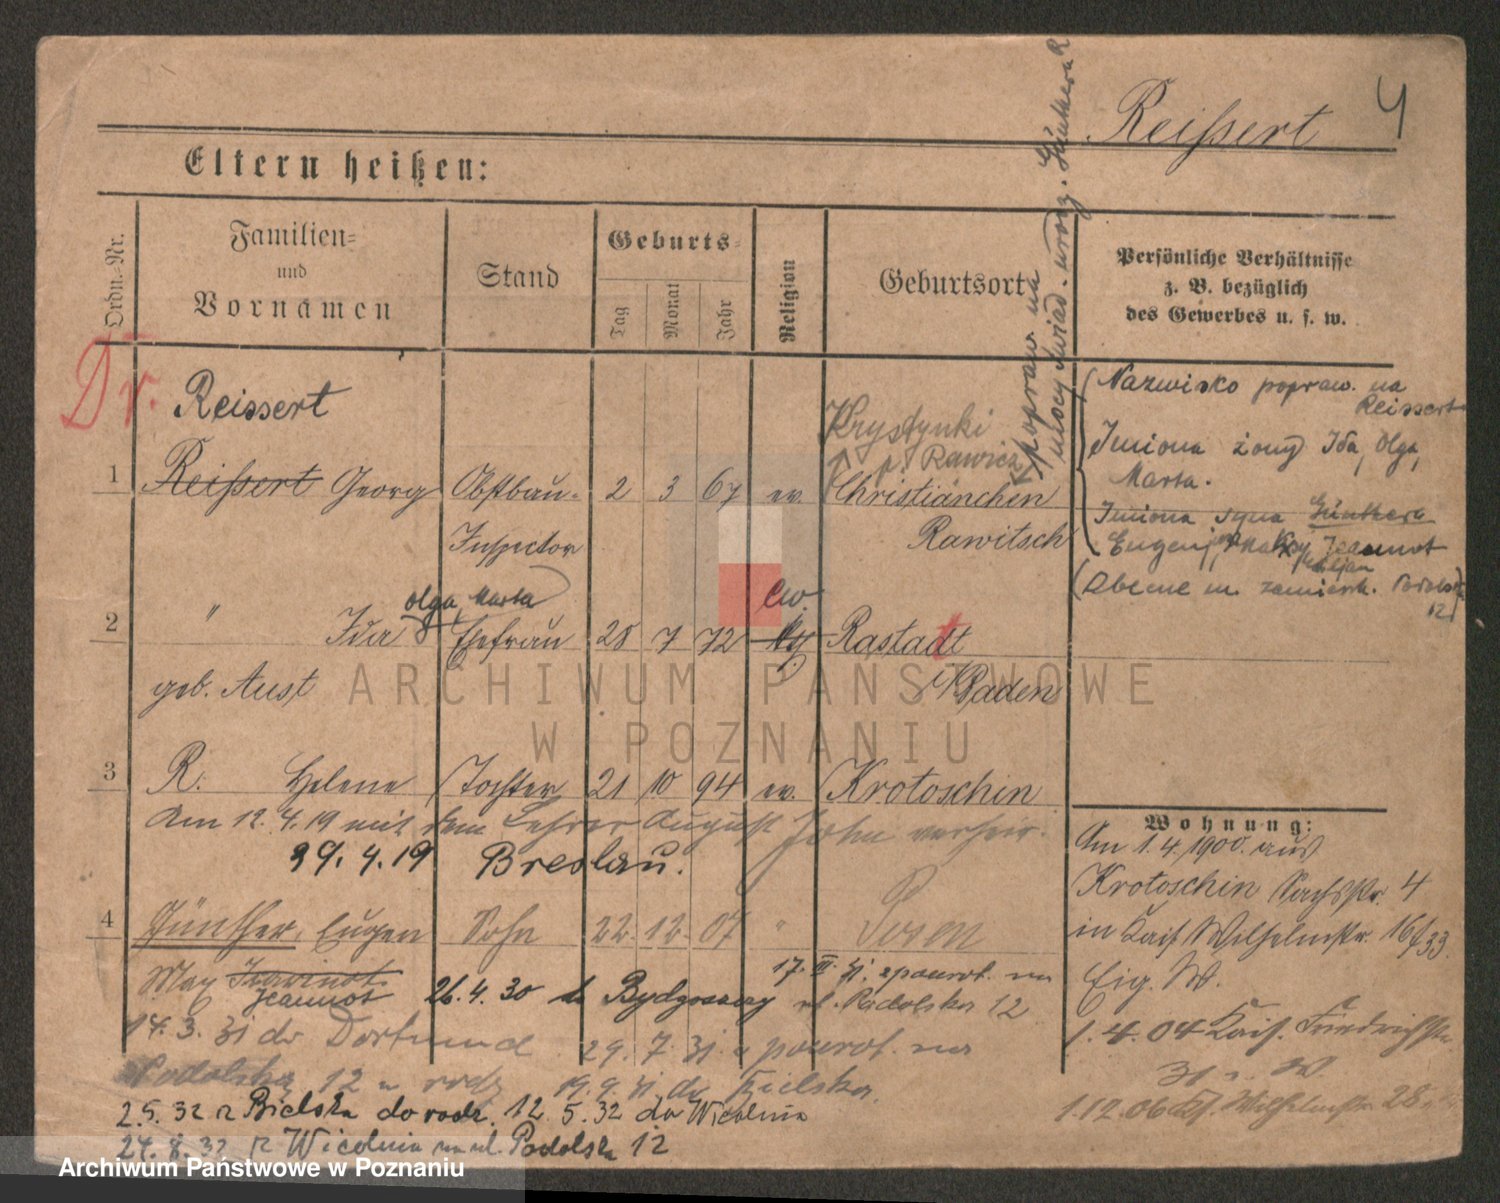 4
Reißert
Eltern heißen:
Ordn.-Nr.
Familien-
und
Vornamen
Stand
Geburts-
Tag
Monat
Jahr
Religion
Geburtsort
Persönliche Verhältnisse
z. B. bezüglich
des Gewerbes u. s. w.
popraw. na
mocy świad. urodz. Günthera R
Dr.
Reissert
1 Reißert Georg Obstbau- 2 3 67 ev. Christianchen
Inspector Rawitsch
Krystynki
p. Rawicz
Nazwisko popraw. na
Reissert
Imiona żony Ida, Olga,
Marta.
Imiona syna Günthera
Eugenj Jeannot
(Obecne m. zamieszk. Podolska
12)
Olga, Marta
2 " Ida Ehefrau 28 7 72 ev. Rastadt
geb. Aust i/Baden
3 R. Helene Tochter 21 10 94 ev. Krotoschin
Am 12. 4. 19 mit dem Lehrer August John verheir.
29. 4. 19 Breslau.
4 Günther, Eugen Sohn 22. 12. 07 " Posen
Max Jeannot
26. 4. 30 do Bydgoszczy
17. III. 31. z powrot. na
ul. Podolska 12
14. 3. 31 do Dortmund 29. 7. 31. z powrot. na
Podolska 12 u rodz 19. 9. 31 do Bielska.
2.5. 32 z Bielska do rodz. 12. 5. 32 do Wicolnia
24. 8. 32 z Wicolnia na ul. Podolska 12
Wohnung:
Am 1. 4. 1900. aus
Krotoschin Sachsstr. 4
in Kais. Wilhelmstr. 16/33.
Eig. W.
1. 4. 04 Kais. Friedrichstr.
31
1.12.06 Ks. Wilhelmstr. 28.
ARCHIWUM PAŃSTWOWE
W POZNANIU
Archiwum Państwowe w Poznaniu